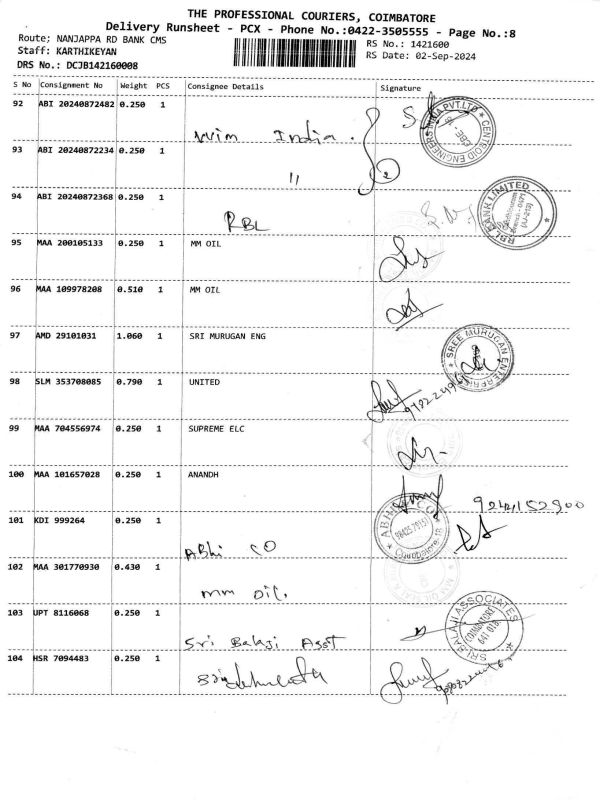 THE PROFESSIONAL COURIERS, COIMBATORE
Delivery Runsheet - PCX - Phone No.:0422-3505555 - Page No.:8
Route; NANJAPPA RD BANK CMS
RS No.: 1421600
Staff: KARTHIKEYAN
RS Date: 02-Sep-2024
DRS No.: DCJB142160008
S No Consignment No Weight PCS Consignee Details Signature
92 ABI 20240872482 0.250 1 Wim India
93 ABI 20240872234 0.250 1 "
94 ABI 20240872368 0.250 1 RBL
RBL BANK LIMITED
95 MAA 200105133 0.250 1 MM OIL
96 MAA 109978208 0.510 1 MM OIL
97 AMD 29101031 1.060 1 SRI MURUGAN ENG
SREE MURUGAN ENTERPRISES
98 SLM 353708085 0.790 1 UNITED
99 MAA 704556974 0.250 1 SUPREME ELC
100 MAA 101657028 0.250 1 ANANDH
9244152900
101 KDI 999264 0.250 1 Abhi CO
102 MAA 301770930 0.430 1 mm oil.
103 UPT 8116068 0.250 1 Sri Balaji Asst
SRI BALAJI ASSOCIATES
COIMBATORE
641 018
104 HSR 7094483 0.250 1